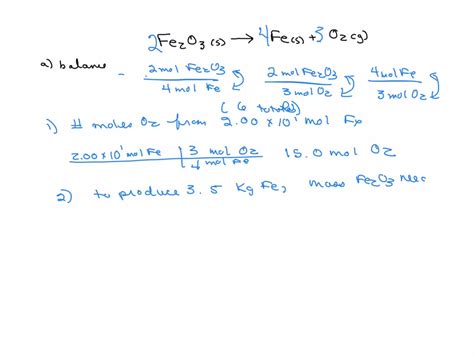 2Fe2O3(s) → 4Fe(s) + 3O2(g)
a) balance
- 2mol Fe2O3 / 4 mol Fe   2molFe2O3 / 3molO2   4molFe / 3molO2
(6 total)
1) # moles O2 from 2.00 x 10^1 mol Fe
2.00x10^1 mol Fe | 3 mol O2 / 4 mol Fe   15.0 mol O2
2) to produce 3.5 Kg Fe, mass Fe2O3 nec